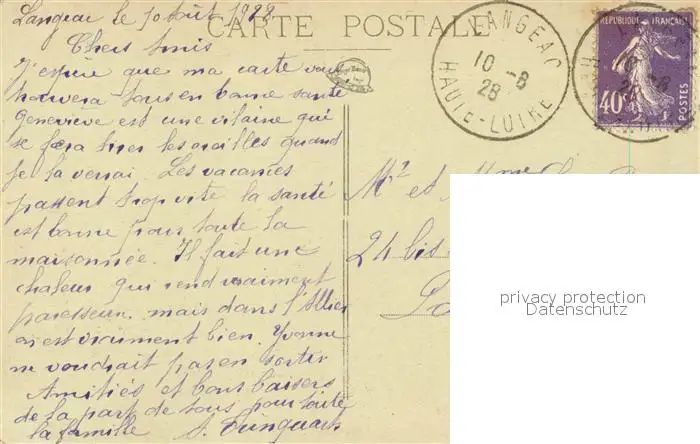 Langeac le 10 Août 1928
CARTE POSTALE
Chers Amis
J'espère que ma carte vous
trouvera tous en bonne santé
Geneviève est une vilaine qui
se fera tirer les oreilles quand
je la verrai. Les vacances
passent trop vite la santé
est bonne pour toute la
maisonnée. Il fait une
chaleur qui rend vraiment
paresseux, mais dans l'Allier
on est vraiment bien. Yvonne
ne voudrait pas en sortir
Amitiés et bons baisers
de la part de tous pour toute
la famille
LANGEAC
10 -8
28
HAUTE-LOIRE
REPUBLIQUE FRANÇAISE
40c
POSTES
Mr et Mme
24 bis
privacy protection
Datenschutz